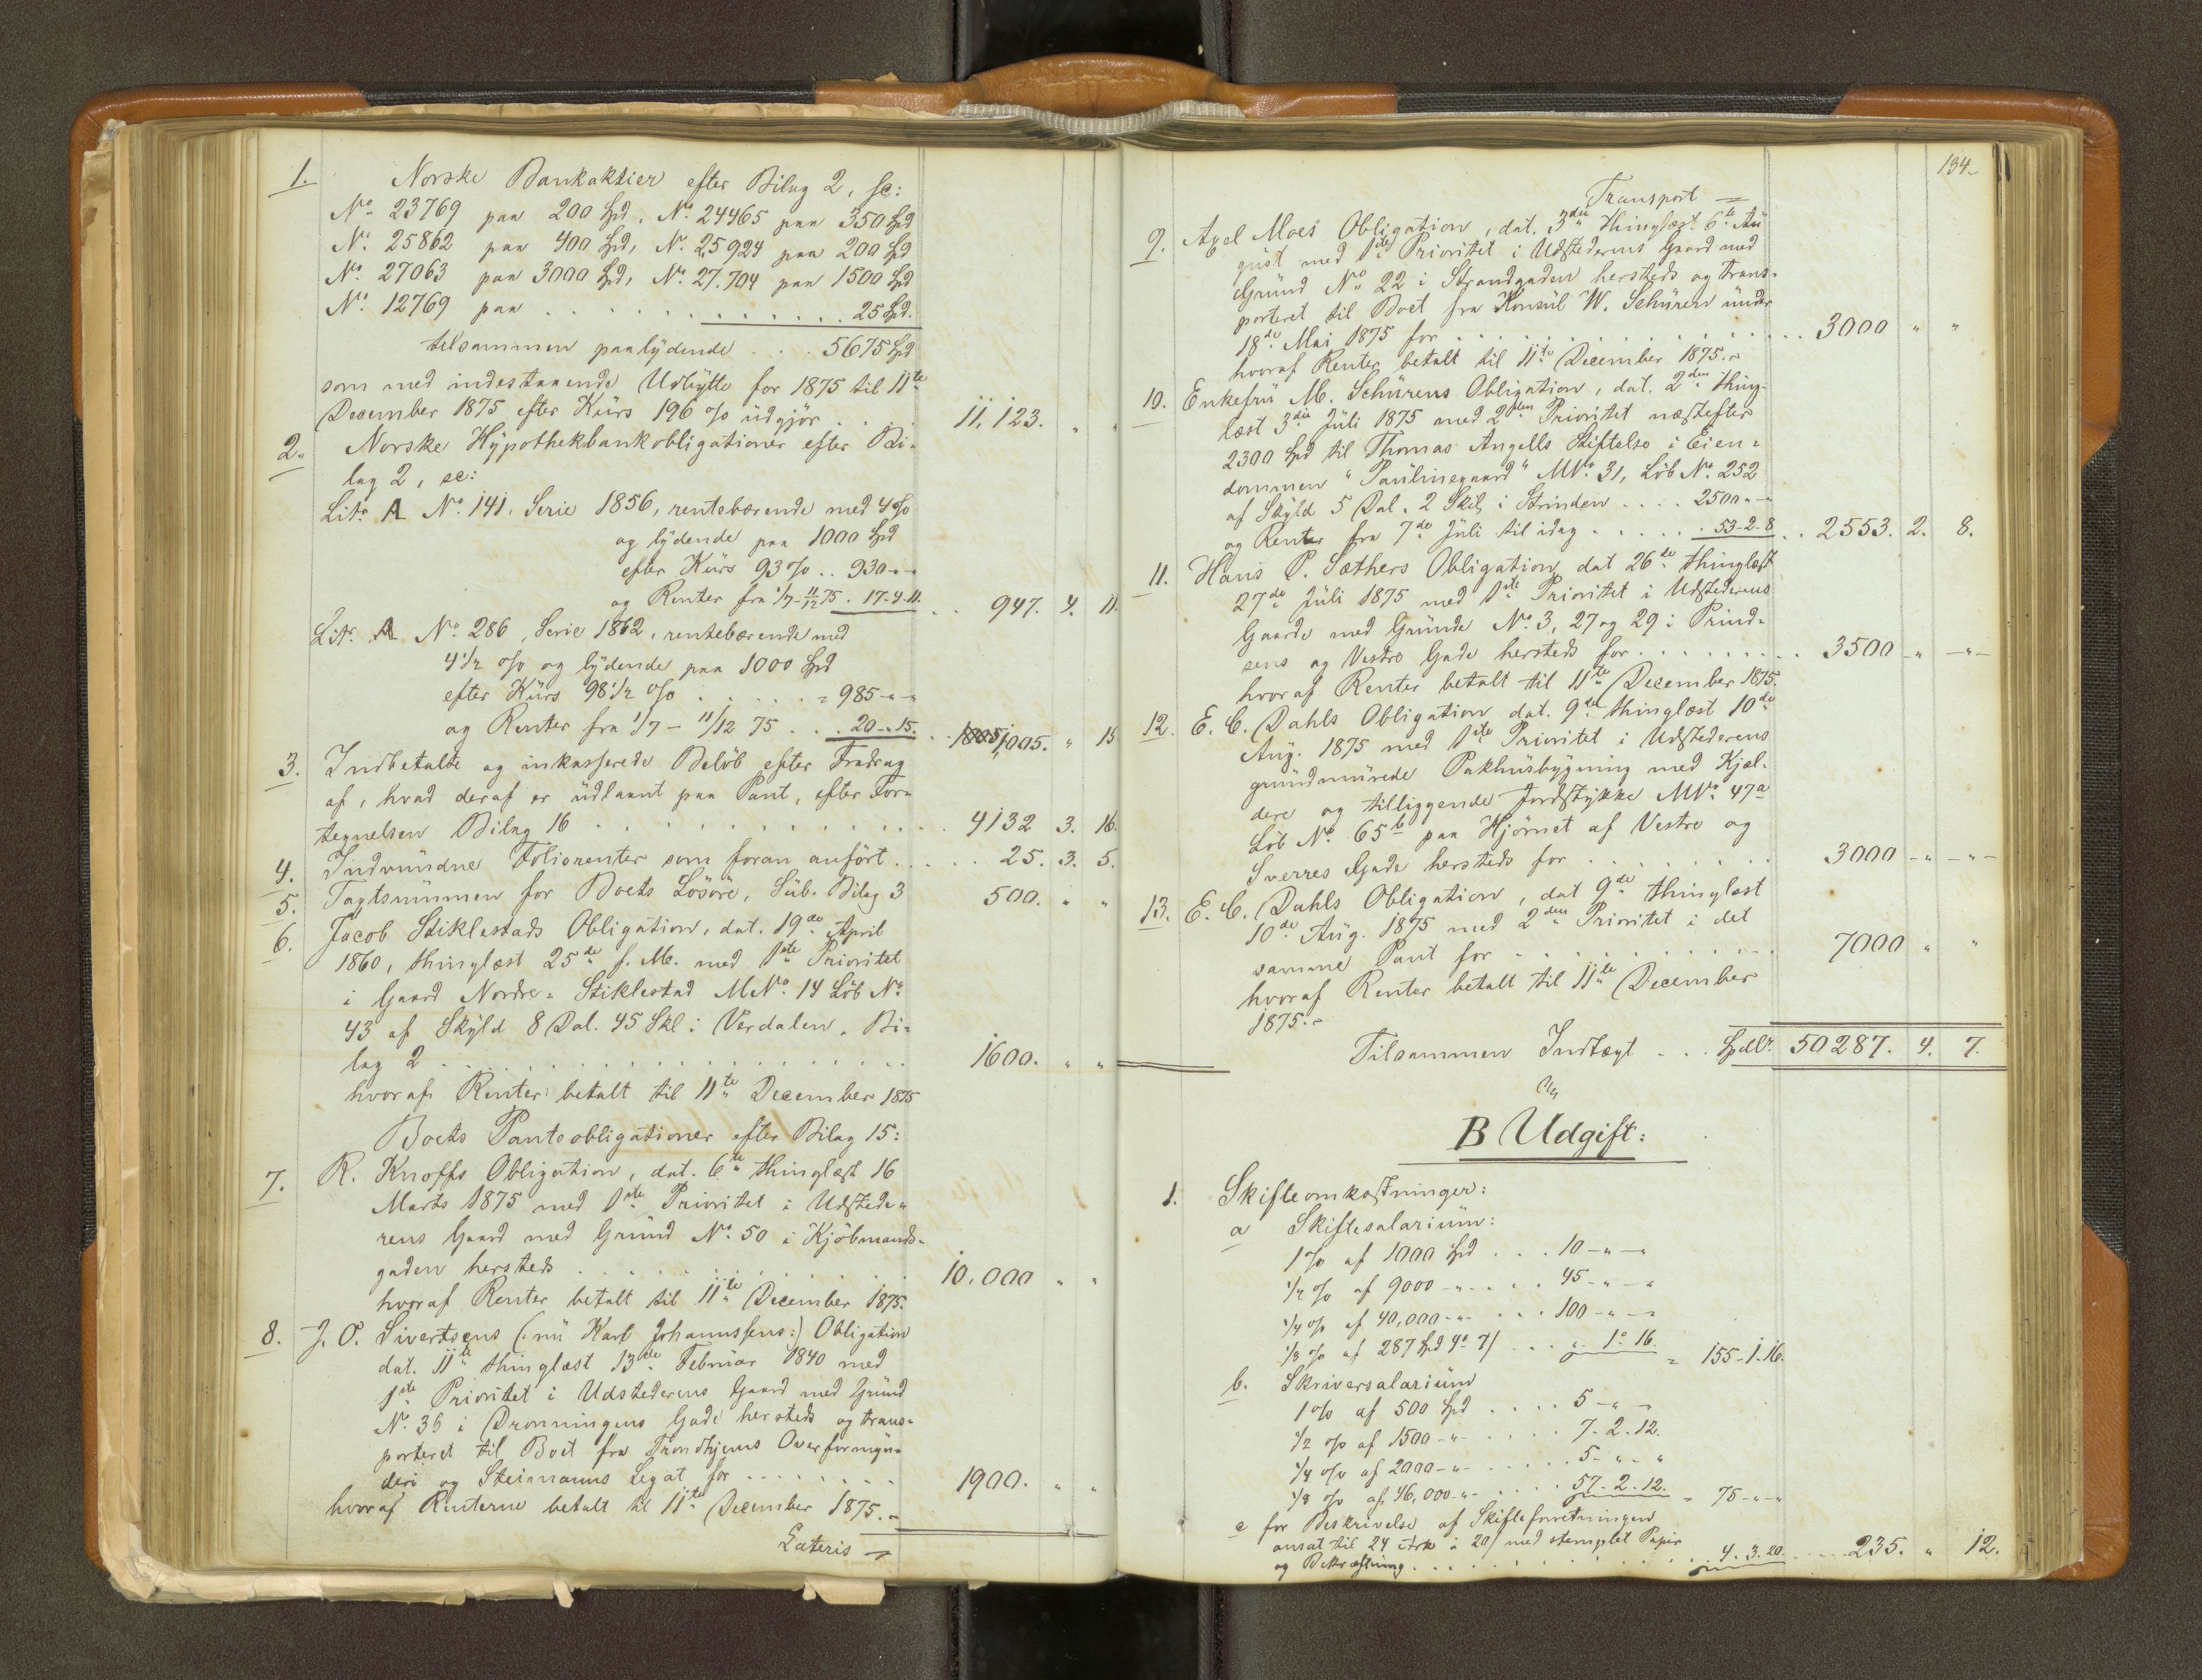 1. Norske Bankaktier efter Bilag 2, sc:
No 23769 paa 200 Spd, No 24465 paa 350 Spd
No 25862 paa 400 Spd, No 25924 paa 200 Spd
No 27063 paa 3000 Spd, No 27.704 paa 1500 Spd
No 12769 paa . . . . . . . . 25 Spd.
tilsammen paalydende . . . 5675 Spd
som med indestaaende Udbytte for 1875 til 11te
December 1875 efter Kürs 196 % üdgjör . . . 11,123. " "
2. Norske Hypothekbankobligationer efter Bi-
lag 2, sc:
Litr. A No 141, Serie 1856, rentebærende med 4 %
og lydende paa 1000 Spd
efter Kürs 93 % . . 930 - " - "
og Renter fra 1/7 - 11/12 75 . 17-4-11. . . 947. 4. 11.
Litr. A No 286, Serie 1862, rentebærende med
4 1/2 % og lydende paa 1000 Spd
efter Kürs 98 1/2 % . . . . = 985 - " - "
og Renter fra 1/7 - 11/12 75 . . . 20 - " 15. . . 1005. " 15
3. Indbetalte og inkasserede Beløb efter Fradrag
af, hvad deraf er üdlaant paa Pant, efter For-
tegnelsen Bilag 16 . . . . . . . . 4132 3. 16.
4. Indvundne Foliorenter som foran anført . . . . 25. 3. 5.
5. Taxtsummen for Boets Løsøre, Süb. Bilag 3 500. " "
6. Jacob Stiklestads Obligation, dat. 19de April
1860, thinglæst 25de s. M. med 1ste Prioritet
i Gaard Nordre-Stiklestad MNo 14 Løb No
43 af Skyld 8 Dal. 45 Skl i Verdalen. Bi-
lag 2 . . . . . . . . 1600. " "
hvoraf Renter betalt til 11te December 1875
Boets Panteobligationer efter Bilag 15:
7. R. Knoffs Obligation, dat. 6te thinglæst 16
Marts 1875 med 1ste Prioritet i Udstede-
rens Gaard med Gründ No 50 i Kjøbmands-
gaden hersteds . . . . . . . . 10.000 " "
hvoraf Renter betalt til 11te December 1875.
8. J. O. Sivertsens (: nü Karl Johannssens :) Obligation
dat. 11te thinglæst 13de Februar 1840 med
1ste Prioritet i Udstederens Gaard med Gründ
No 36 i Dronningens Gade hersteds og trans-
porteret til Boet fra Trondhjems Overformyn-
deri og Steimanns Legat for . . . . . . . 1900. " "
hvoraf Renterne betalt til 11te December 1875. -
Lateris
134.
Transport
9. Axel Moes Obligation, dat. 3die thinglæst 6te Aü
güst med 1ste Prioritet i Udstederens Gaard med
Gründ No 22 i Strandgaden hersteds og trans-
porteret til Boet fra Konsül W. Schüren ünder
18de Mai 1875 for . . . . . . . . 3000 " "
hvoraf Renter betalt til 11te December 1875. -
10. Enkefrü M. Schürens Obligation, dat. 2den thing-
læst 3die Jüli 1875 med 2den Prioritet næstefter
2300 Spd til Thomas Angells Stiftelse i Eien-
dommen "Paülinegaard" MNo 31, Løb No 252
af Skyld 5 Dal. 2 Skil. i Strinden . . . . 2500 " - "
og Renter fra 7de Jüli til idag . . . . . 53-2-8 . . 2553. 2. 8.
11. Hans P. Sæthers Obligation, dat 26de thinglæst
27de Jüli 1875 med 1ste Prioritet i Udstederens
Gaarde med Gründe No 3, 27 og 29 i Prind-
sens og Vestre Gade hersteds for . . . . . . . . 3500 - " - " -
hvoraf Renter betalt til 11te December 1875.
12. E. C. Dahls Obligation dat. 9de thinglæst 10de
Aüg. 1875 med 1ste Prioritet i Udstederens
gründmürede Pakhüsbygning med Kjæl-
dere og tilliggende Jordstykke MNo 47a
Løb No 65b paa Hjørnet af Vestre og
Sverres Gade hersteds for . . . . . . . 3000 - " - " -
13. E. C. Dahls Obligation, dat 9de thinglæst
10de Aüg. 1875 med 2den Prioritet i det
samme Pant for . . . . . . . . 7000 " "
hvoraf Renter betalt til 11te December
1875. -
Tilsammen Indtægt . . . Spdlr. 50287. 4. 7.
B Udgift:
1. Skifteomkostninger:
a Skiftesalariüm:
1 % af 1000 Spd . . . 10 - " - "
1/2 % af 9000 - " - . . . 45 - " - "
1/4 % af 40,000 - " - . . . 100 - " - "
1/8 % af 287 Spd 4 " 7/ . . . " - 1 " 16. = 155-1-16.
b. Skriversalariüm
1 % af 500 Spd . . . . 5 - " - "
1/2 % af 1500 - " - . . . . . 7-2-12.
1/4 % af 2000 - " - . . . . . 5 - " - "
1/8 % af 46,000 - " - . . . . 57-2-12. = 75 - " - "
c for Beskrivelse af Skifteforretningen
ansat til 24 Ark à 20/ med stemplet Papir
og Bekræftning . . . . . . . . 4. 3. 20. . . . . 235. " 12.